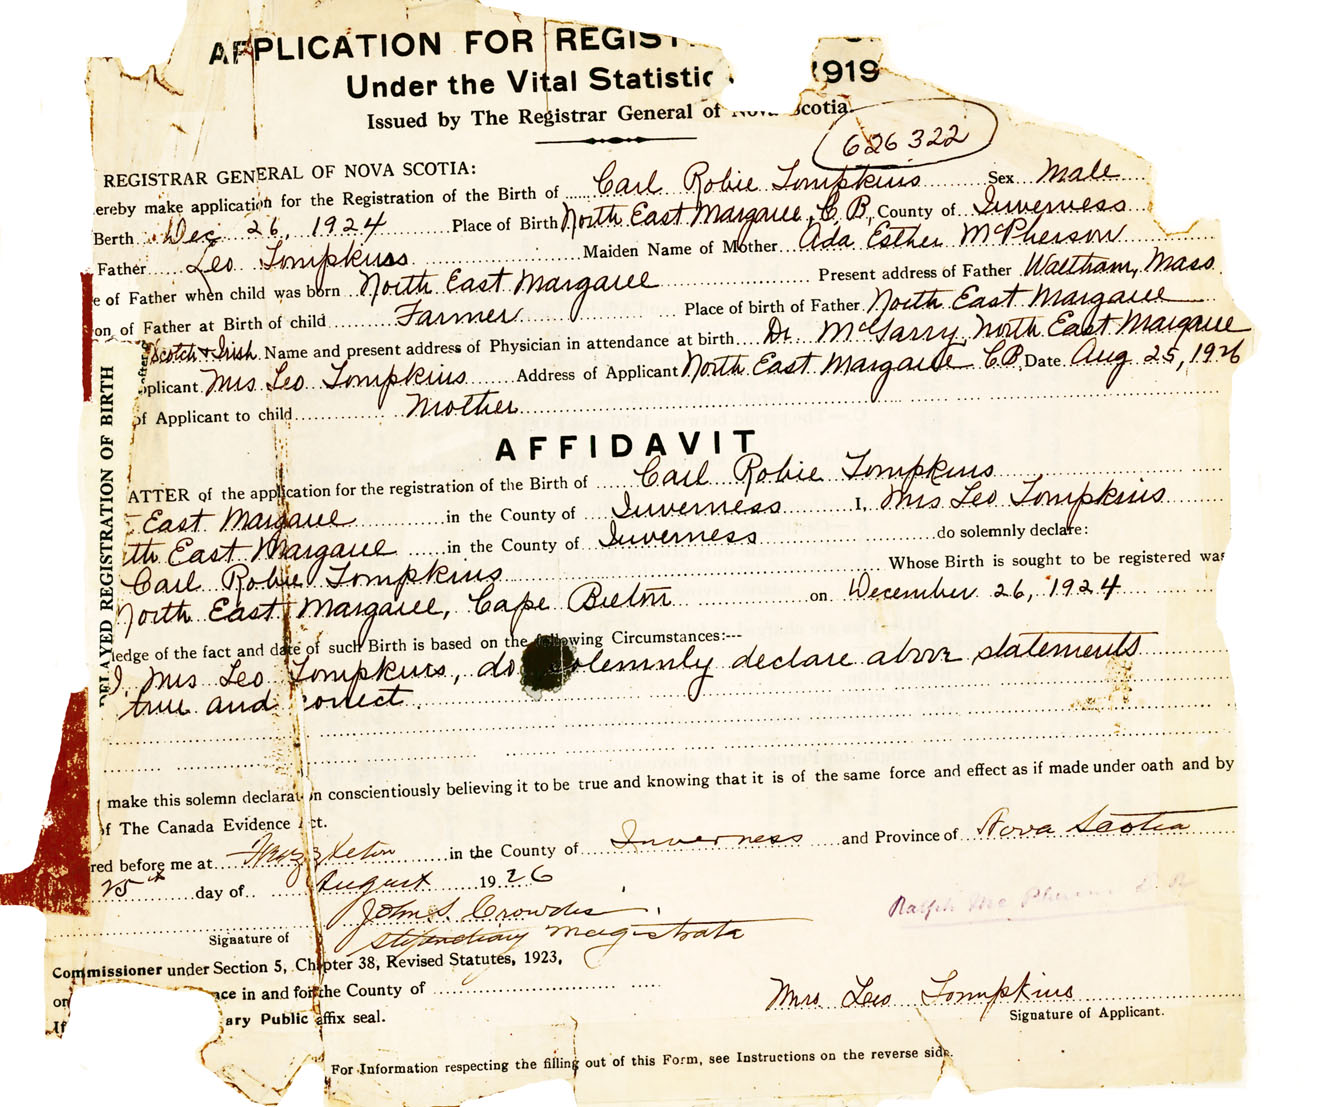 APPLICATION FOR REGIST
Under the Vital Statistic 1919
Issued by The Registrar General of Nova Scotia.
626322
REGISTRAR GENERAL OF NOVA SCOTIA:
ereby make application for the Registration of the Birth of Carl Robie Tompkins Sex Male
Berth Dec 26, 1924 Place of Birth North East Margaree, C.B. County of Inverness
Father Leo Tompkins Maiden Name of Mother Ada Esther McPherson
e of Father when child was born North East Margaree Present address of Father Waltham, Mass
on of Father at Birth of child Farmer Place of birth of Father North East Margaree
Scotch & Irish Name and present address of Physician in attendance at birth Dr. McGarry, North East Margaree
plicant Mrs Leo Tompkins Address of Applicant North East Margaree C.B. Date Aug 25, 1926
of Applicant to child Mother
DELAYED REGISTRATION OF BIRTH
AFFIDAVIT
ATTER of the application for the registration of the Birth of Carl Robie Tompkins
East Margaree in the County of Inverness I, Mrs Leo Tompkins
th East Margaree in the County of Inverness do solemnly declare:
Carl Robie Tompkins Whose Birth is sought to be registered was
North East Margaree, Cape Breton on December 26, 1924
ledge of the fact and date of such Birth is based on the following Circumstances:---
I, Mrs Leo Tompkins, do solemnly declare above statements
true and correct.
make this solemn declaration conscientiously believing it to be true and knowing that it is of the same force and effect as if made under oath and by
of The Canada Evidence Act.
red before me at in the County of Inverness and Province of Nova Scotia
25th day of August 1926
John S. Crowdis
Signature of Stipendiary Magistrate
Ralph
Commissioner under Section 5, Chapter 38, Revised Statutes, 1923,
on ace in and for the County of
Mrs Leo Tompkins
If ary Public affix seal.
Signature of Applicant.
For Information respecting the filling out of this Form, see Instructions on the reverse side.